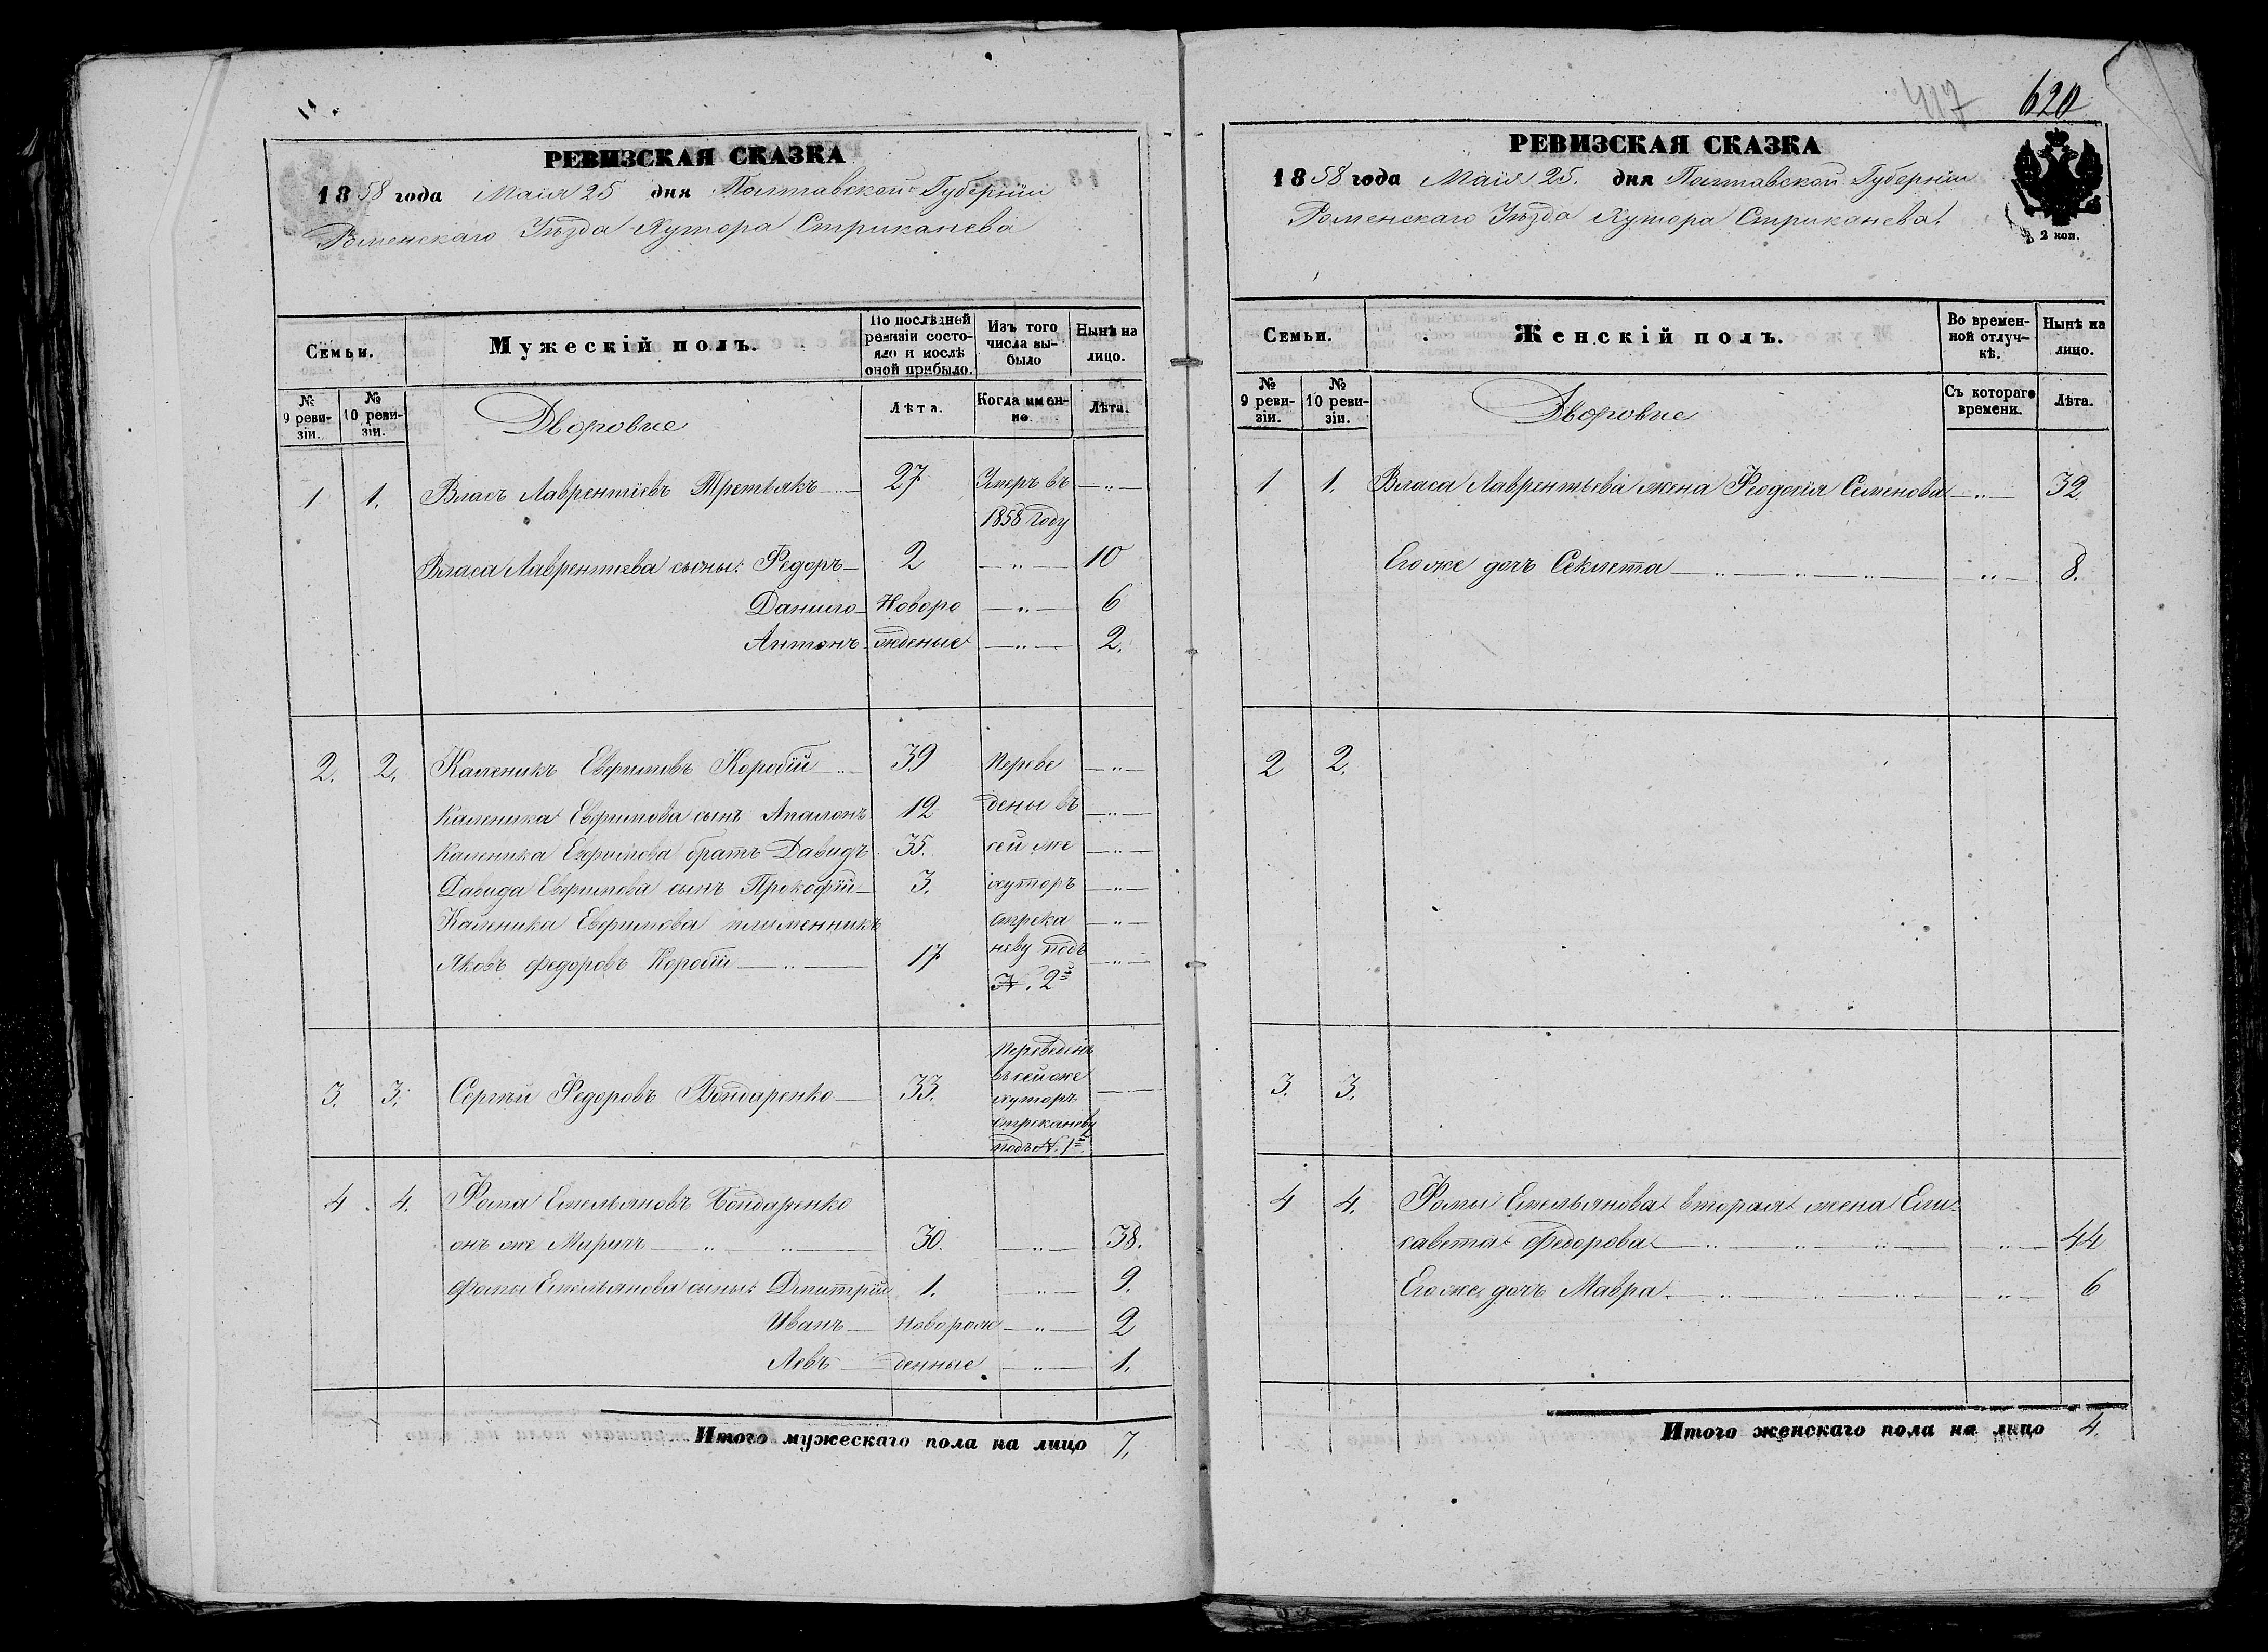 417 620
РЕВИЗСКАЯ СКАЗКА
1858 года Маія 25 дня Полтавской Губерніи
Роменскаго Уѣзда Хутора Стриканева
Семьи.
Мужескій полъ.
По послѣдней ревизіи состояло и послѣ оной прибыло.
Изъ того числа выбыло
Нынѣ на лицо.
№ 9 ревизіи.
№ 10 ревизіи.
Дворовые
Лѣта.
Когда именно.
Лѣта.
1 1. Власъ Лаврентіевъ Третьякъ 27 Умеръ въ —„—
1858 году
Власа Лаврентиева сыны: Федоръ 2 —„— 10
Данило Новоро —„— 6
Антонъ жденые —„— 2.
2. 2. Каленикъ Евфимовъ Коробій 39 Переве —„—
Каленика Евфимова сынъ Апалонъ 12 дены въ —„—
Каленика Евфимова братъ Давидъ 35. сей же —„—
Давида Евфимова сынъ Прокофій 3. хуторъ —„—
Каленика Евфимова племенникъ Стрека —„—
Яковъ Федоровъ Коробій —„— 17 неву подъ —„—
№. 2й
3. 3. Сергѣй Федоровъ Бондаренко 33. Переведенъ
въ сей же
хуторъ
Стреканеву
подъ №. 1й
4. 4. Фома Емельяновъ Бондаренко
онъ же Миричъ —„—„— 30. —„— 38.
Фомы Емельянова сыны: Дмитрій 1. —„— 9.
Иванъ Новорож —„— 2
Левъ денные —„— 1.
Итого мужескаго пола на лицо 7.
РЕВИЗСКАЯ СКАЗКА
1858 года Маія 25. дня Полтавской Губерніи
Роменскаго Уѣзда Хутора Стриканева.
2 коп.
Семьи.
Женскій полъ.
Во временной отлучкѣ.
Нынѣ на лицо.
№ 9 ревизіи.
№ 10 ревизіи.
Дворовые
Съ котораго времени.
Лѣта.
1 1. Власа Лаврентьева жена Феодосія Семенова —„— 32
Его же дочъ Секлета —„—„—„— —„— 8.
2 2.
3. 3.
4 4. Фомы Емельянова вторая жена Ели
савета Федорова —„—„—„— —„— 44
Его же дочъ Мавра —„—„—„— —„— 6
Итого женскаго пола на лицо 4.